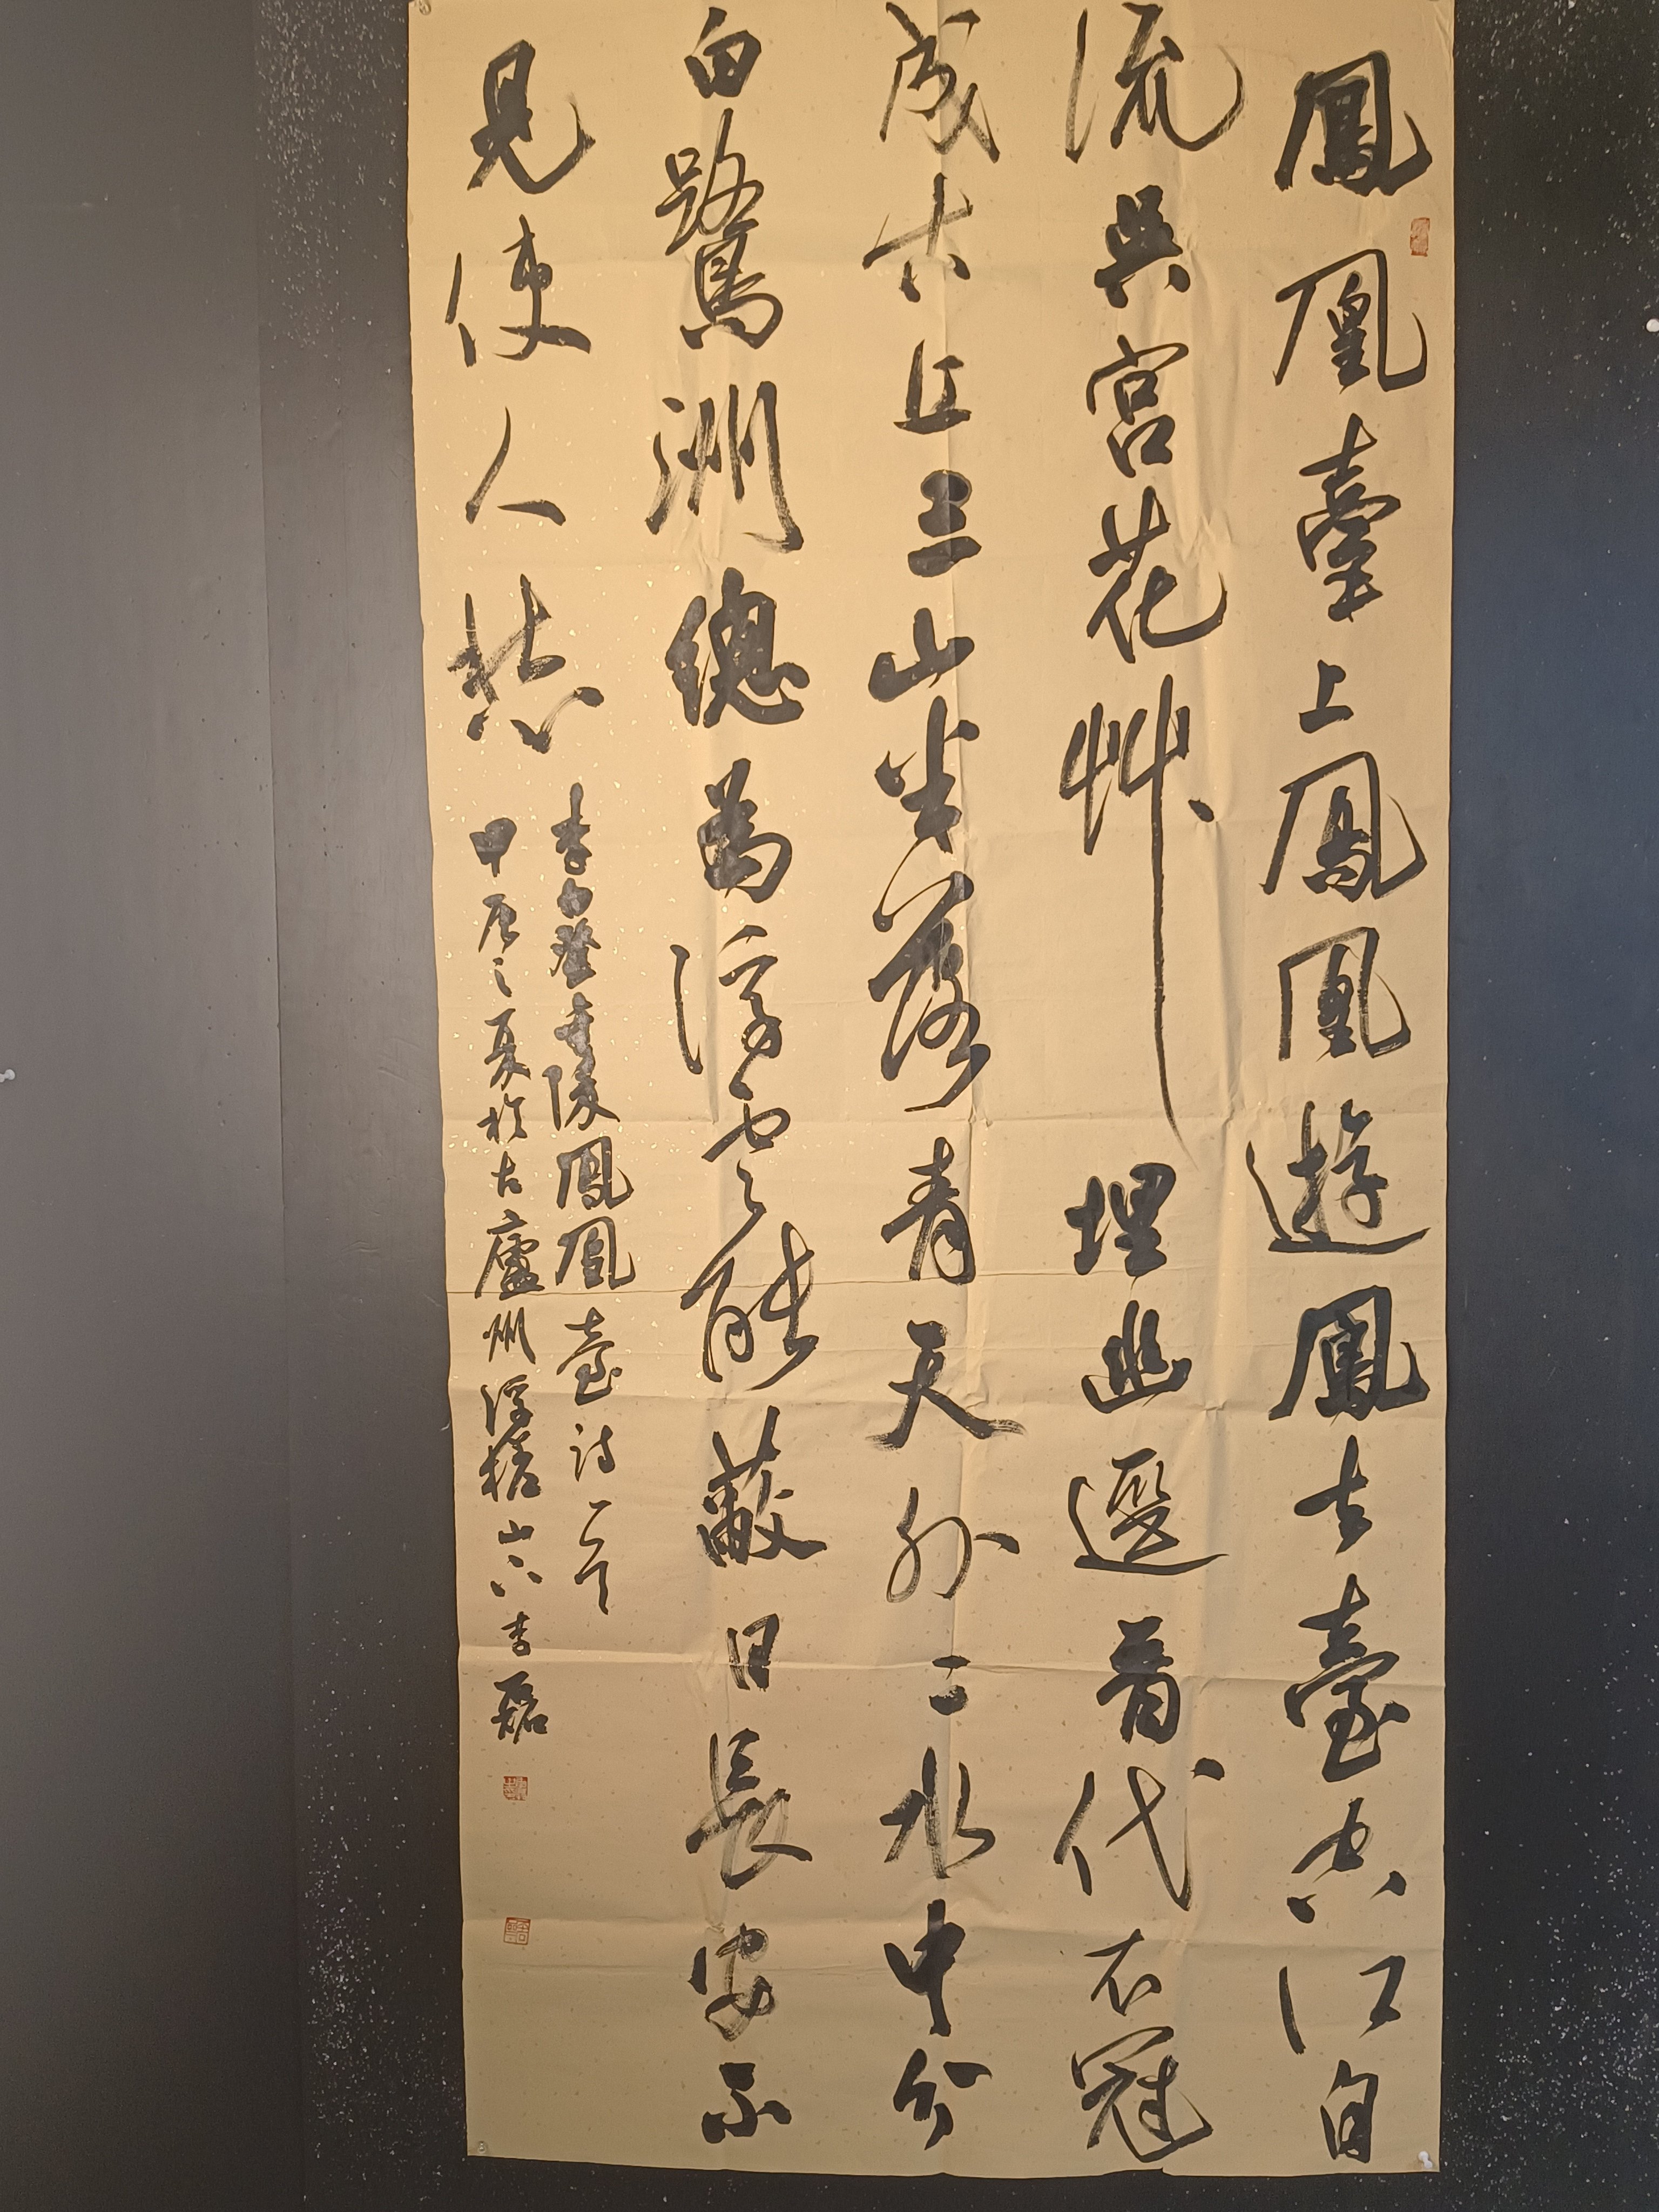 鳳凰臺上鳳凰遊鳳去臺空江自
流吳宮花艸埋幽逕晉代衣冠
成古丘三山半落青天外二水中分
白鷺洲總為浮雲能蔽日長安不
見使人愁
李白登金陵鳳凰臺詩一首
甲辰之夏於古廬州浮槎山下李磊